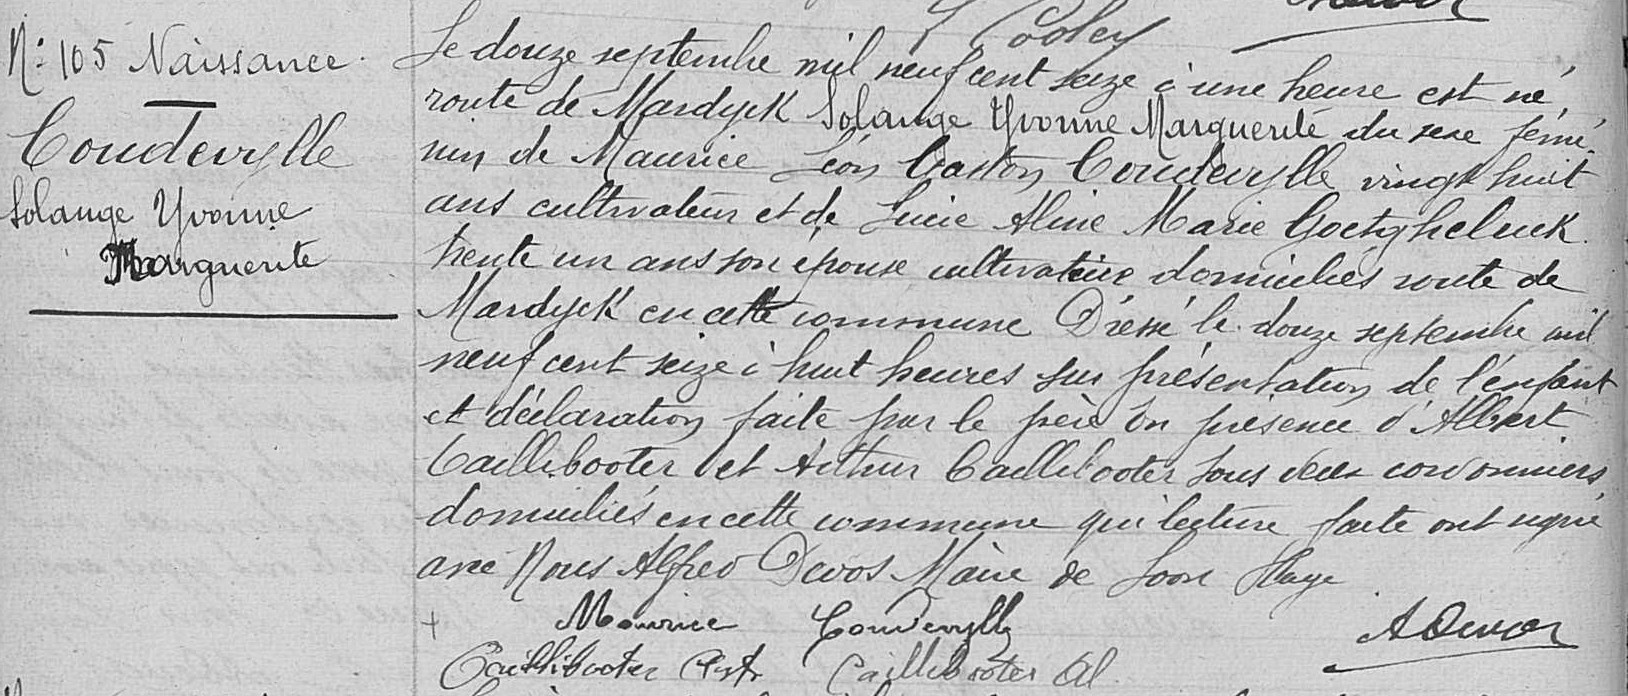 N: 105 Naissance.
Coudevylle
Solange Yvonne
Marguerite
Le douze septembre mil neuf cent seize à une heure est né,
route de Mardyck Solange Yvonne Marguerite du sexe fémi-
nin de Maurice Léon Gaston Coudevylle vingt huit
ans cultivateur et de Lucie Aline Marie Goetgheluck
trente un ans son épouse cultivatrice domiciliés route de
Mardyck en cette commune Dressé le douze septembre mil
neuf cent seize à huit heures sur présentation de l'enfant
et déclaration faite par le père en présence d'Albert
Caillibooter et Arthur Caillibooter tous deux cordonniers
domiciliés en cette commune qui lecture faite ont signé
avec Nous Alfred Devos Maire de Loon Plage
Maurice Coudevylle
A Devos
Caillibooter Art Caillibooter Al